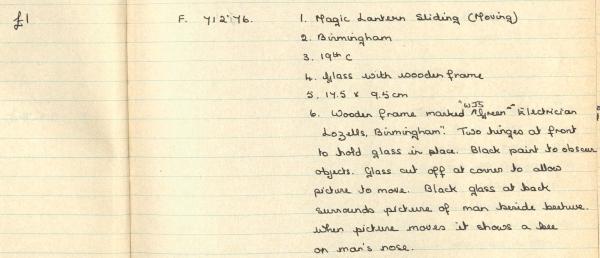 £1
F. 712'76.
1. Magic Lantern Sliding (Moving)
2. Birmingham
3. 19th C
4. Glass with wooden frame
5. 17.5 x 9.5 cm
6. Wooden frame marked "WJS Green" Electrician
Lozells, Birmingham". Two hinges at front
to hold glass in place. Black paint to obscure
objects. Glass cut off at corner to allow
picture to move. Black glass at back
surrounds picture of man beside beehive.
When picture moves it shows a bee
on man's nose.